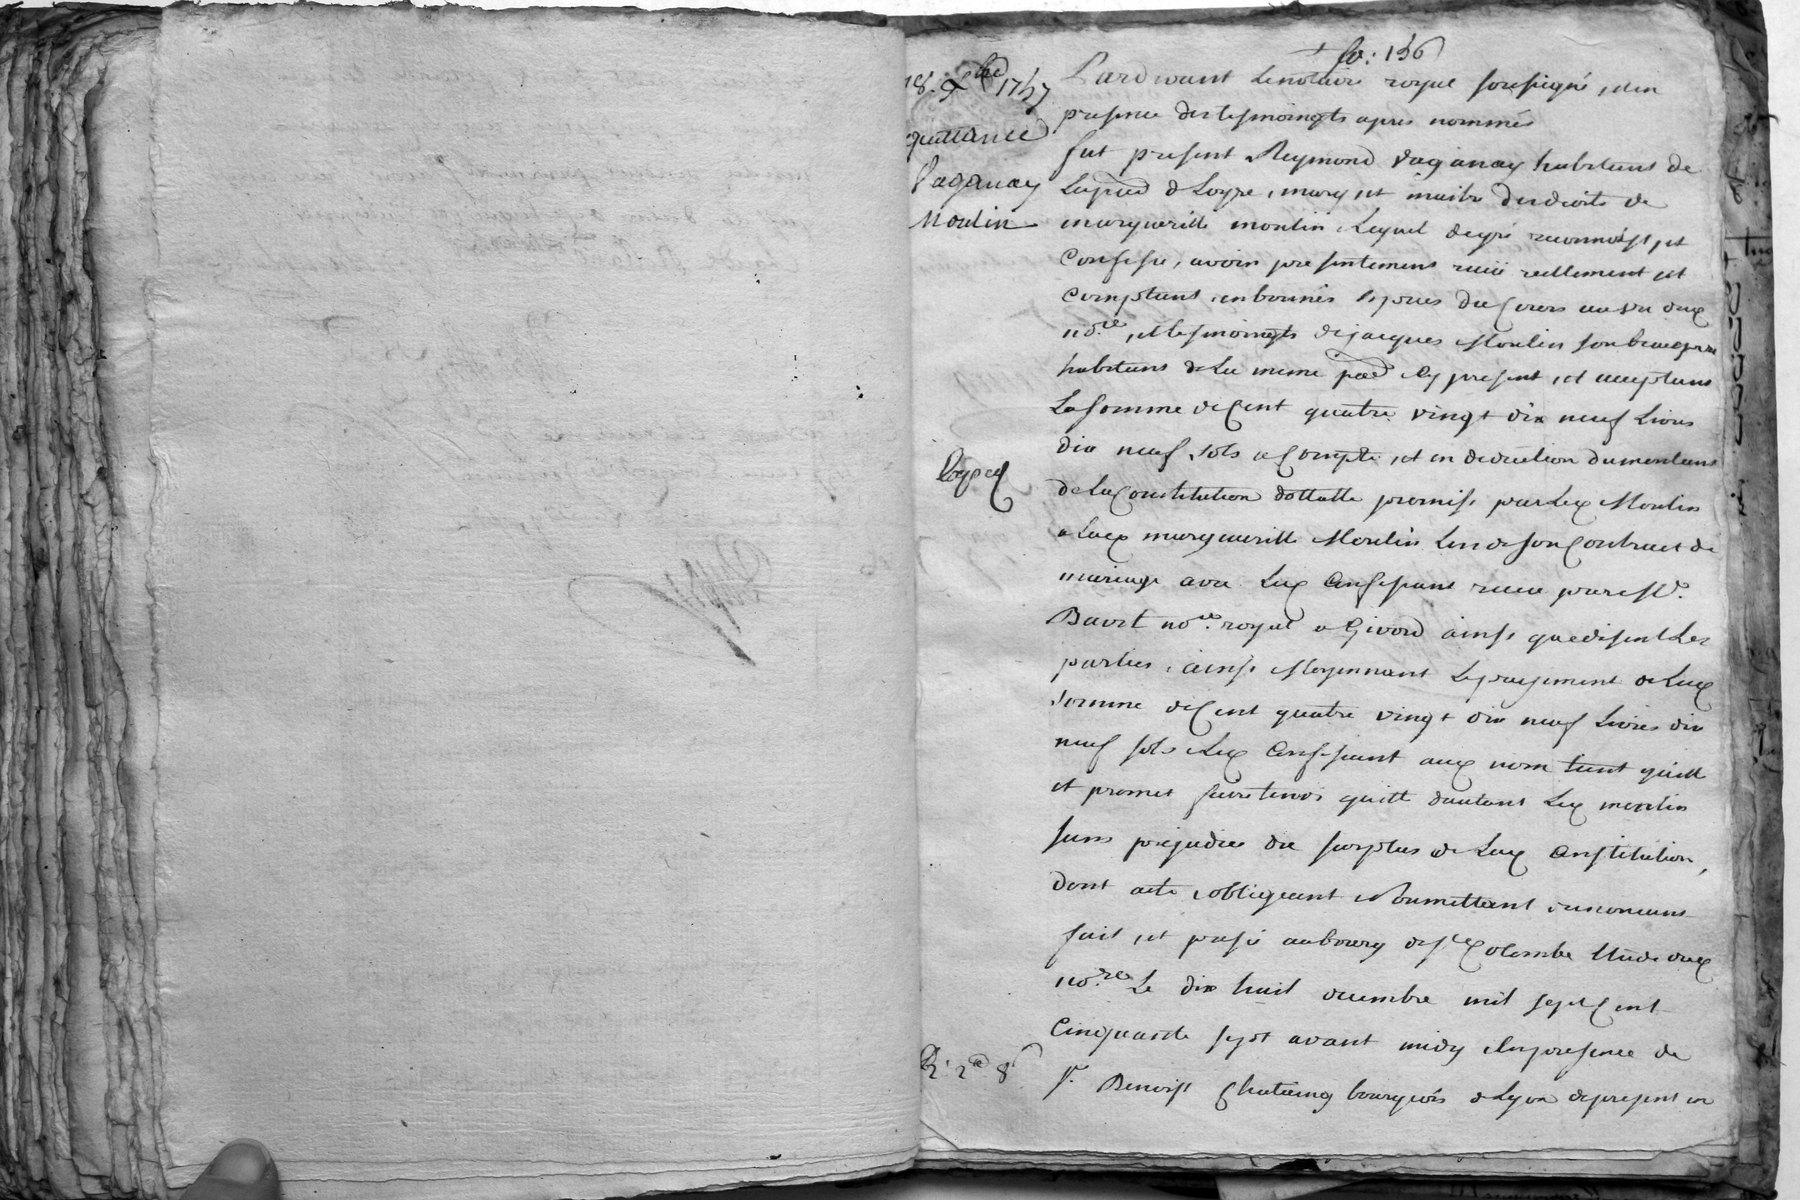 fo: 156
18. Xbre 1757
quittance
Vaganay
Moulin
Exped
Pardevant Le notaire royal soussigné, et en
presence des tesmoingts apres nommés
fut present Reymond vaganay habitant de
de Loyre, mary et maitre des droits de
margueritte moulin Lequel de gré reconnoist et
Confesse, avoir presentement receü reellement et
Comptant en bonnes Especes du Cours au vu dud
nore, et tesmoingts de jacques Moulin son beaupere
habitant de La meme parr icy present, et acceptant
La somme de Cent quatre vingt dix neuf Livres
dix neuf sols a Compte, et en deduction du montant
de La Constitution dottalle promise par Led Moulin
a Lad margueritte Moulin Lors de son Contract de
mariage avec Led Confessant receu par Me
nore royal a Givord ainsi que disent Les
parties, ainsi Moyennant Le payement de Lad
somme de Cent quatre vingt dix neuf Livres dix
neuf sols Led Confessant aud nom tient quitte
et promet faire tenir quitte d'autant Led moulin
sans prejudice du surplus de Lad Constitution,
dont acte, obligeant soumettant renoncant
fait, et passé au bourg de Ste Colombe Etude dud
nore Le dix huit decembre mil sept Cent
Cinquante sept avant midy En presence de
Sr. Benoist bourgeois de Lyon de present en